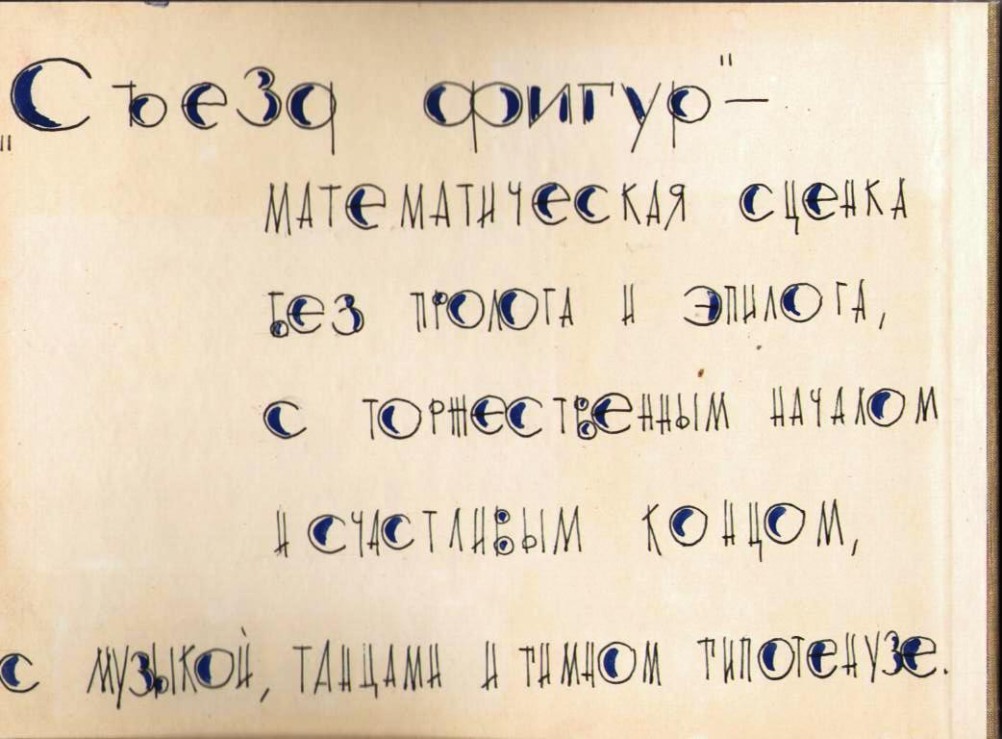 „Съезд фигур" —
математическая сценка
без пролога и эпилога,
с торжественным началом
и счастливым концом,
с музыкой, танцами и гимном гипотенузе.